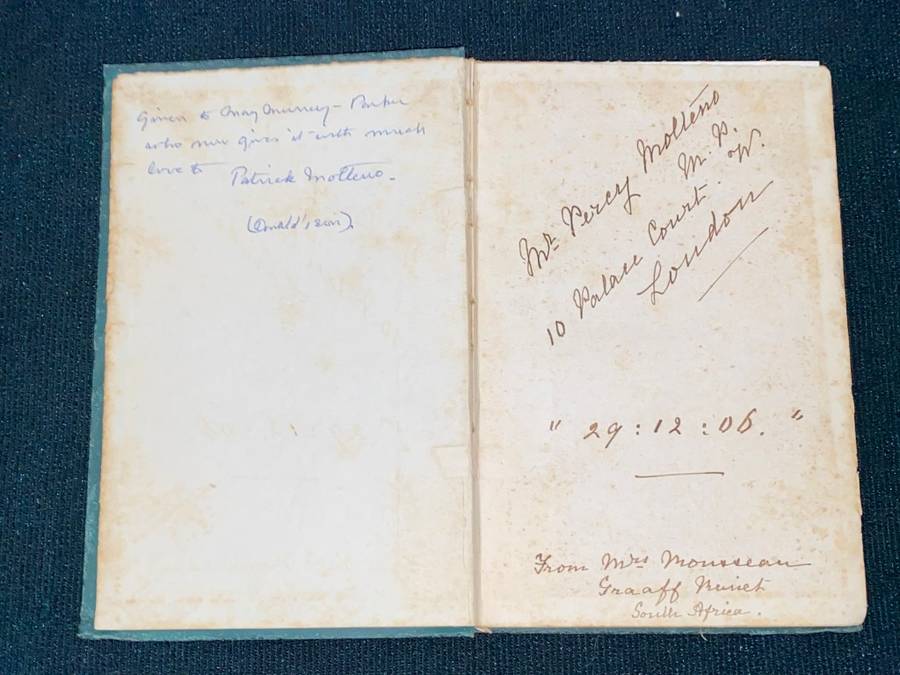 Given to May Murray-Parker
who now gives it with much
love to Patrick Molteno.
(Donald's son).
Mr. Percy Molteno
M. P.
10 Palace Court. W.
London
" 29:12:06. "
From Mrs Mousseau
Graaff Reinet
South Africa.